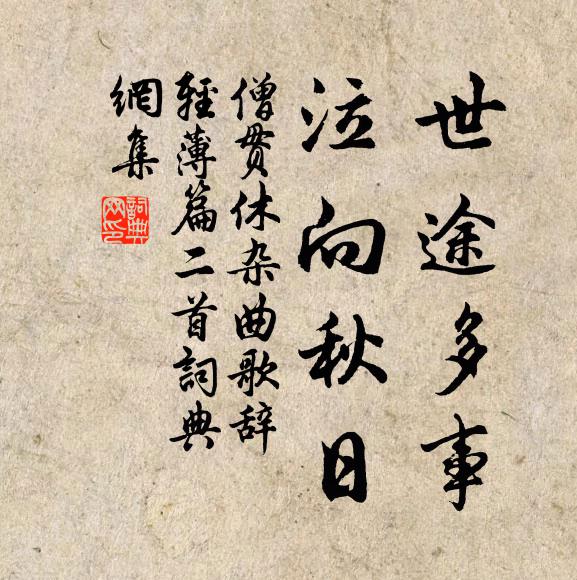 世途多事
泣向秋日
僧贯休杂曲歌辞
輕薄篇二首詞典
網集
詞典
网印